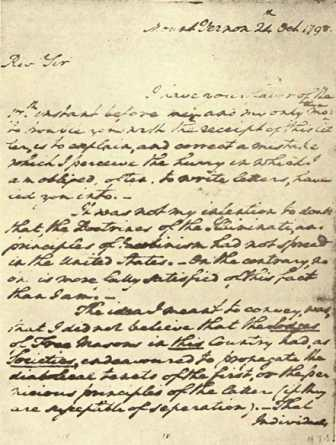 Mount Vernon 24th Oct. 1798.
Revd Sir
I have your favor of the
17th instant before me; and my only mo-
tive
to trouble you with the receipt of this let-
ter, is to explain, and correct a mistake
which I perceive the hurry in which I
am obliged, often, to write letters, have
led you into. —
It was not my intention to doubt
that, the Doctrines of the Illuminati, and
principles of Jacobinism had not spread
in the United States. — On the contrary, no
one is more fully satisfied of this fact
than I am. —
The idea I meant to convey, was,
that I did not believe that the Lodges
of Free Masons in this Country had, as
Societies, endeavoured to propagate the
diabolical tenets of the first, or the per-
nicious principles of the latter (if they
are susceptible of seperation). — That
Individuals